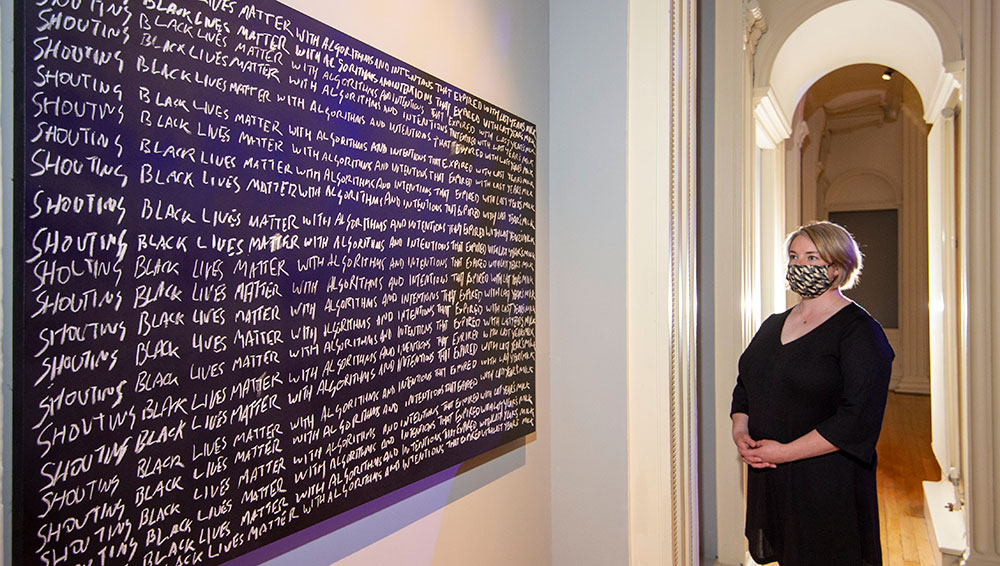 LIVES MATTER WITH ALGORITHMS AND INTENTIONS THAT EXPIRED WITH LAST YEARS MILK
SHOUTING BLACK LIVES MATTER WITH ALGORITHMS AND INTENTIONS THAT EXPIRED WITH LAST YEARS MILK
SHOUTING BLACK LIVES MATTER WITH ALGORITHMS AND INTENTIONS THAT EXPIRED WITH LAST YEARS MILK
SHOUTING BLACK LIVES MATTER WITH ALGORITHMS AND INTENTIONS THAT EXPIRED WITH LAST YEARS MILK
SHOUTING BLACK LIVES MATTER WITH ALGORITHMS AND INTENTIONS THAT EXPIRED WITH LAST YEARS MILK
SHOUTING BLACK LIVES MATTER WITH ALGORITHMS AND INTENTIONS THAT EXPIRED WITH LAST YEARS MILK
SHOUTING BLACK LIVES MATTER WITH ALGORITHMS AND INTENTIONS THAT EXPIRED WITH LAST YEARS MILK
SHOUTING BLACK LIVES MATTER WITH ALGORITHMS AND INTENTIONS THAT EXPIRED WITH LAST YEARS MILK
SHOUTING BLACK LIVES MATTER WITH ALGORITHMS AND INTENTIONS THAT EXPIRED WITH LAST YEARS MILK
SHOUTING BLACK LIVES MATTER WITH ALGORITHMS AND INTENTIONS THAT EXPIRED WITH LAST YEARS MILK
SHOUTING BLACK LIVES MATTER WITH ALGORITHMS AND INTENTIONS THAT EXPIRED WITH LAST YEARS MILK
SHOUTING BLACK LIVES MATTER WITH ALGORITHMS AND INTENTIONS THAT EXPIRED WITH LAST YEARS MILK
SHOUTING BLACK LIVES MATTER WITH ALGORITHMS AND INTENTIONS THAT EXPIRED WITH LAST YEARS MILK
SHOUTING BLACK LIVES MATTER WITH ALGORITHMS AND INTENTIONS THAT EXPIRED WITH LAST YEARS MILK
SHOUTING BLACK LIVES MATTER WITH ALGORITHMS AND INTENTIONS THAT EXPIRED WITH LAST YEARS MILK
SHOUTING BLACK LIVES MATTER WITH ALGORITHMS AND INTENTIONS THAT EXPIRED WITH LAST YEARS MILK
SHOUTING BLACK LIVES MATTER WITH ALGORITHMS AND INTENTIONS THAT EXPIRED WITH LAST YEARS MILK
SHOUTING BLACK LIVES MATTER WITH ALGORITHMS AND INTENTIONS THAT EXPIRED WITH LAST YEARS MILK
SHOUTING BLACK LIVES MATTER WITH ALGORITHMS AND INTENTIONS THAT EXPIRED WITH LAST YEARS MILK
BLACK LIVES MATTER WITH ALGORITHMS AND INTENTIONS THAT EXPIRED WITH LAST YEARS MILK